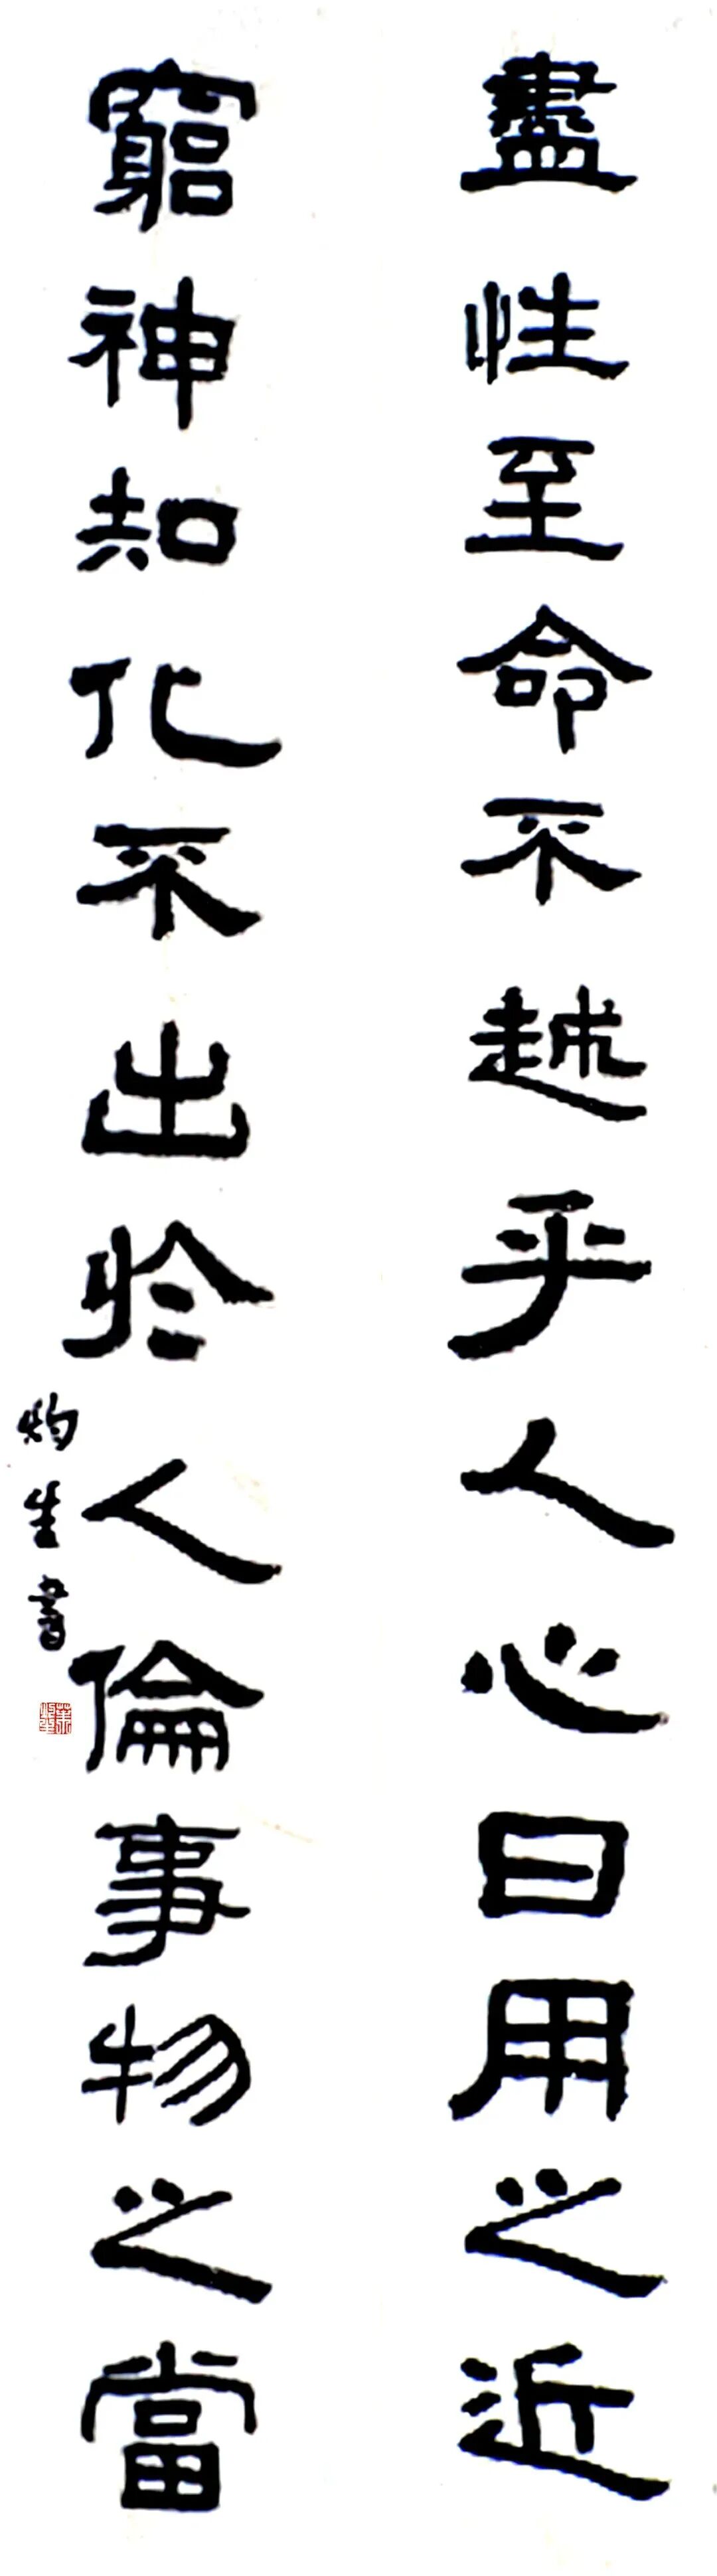 盡性至命不越乎人心日用之近
窮神知化不出於人倫事物之當
灼生書